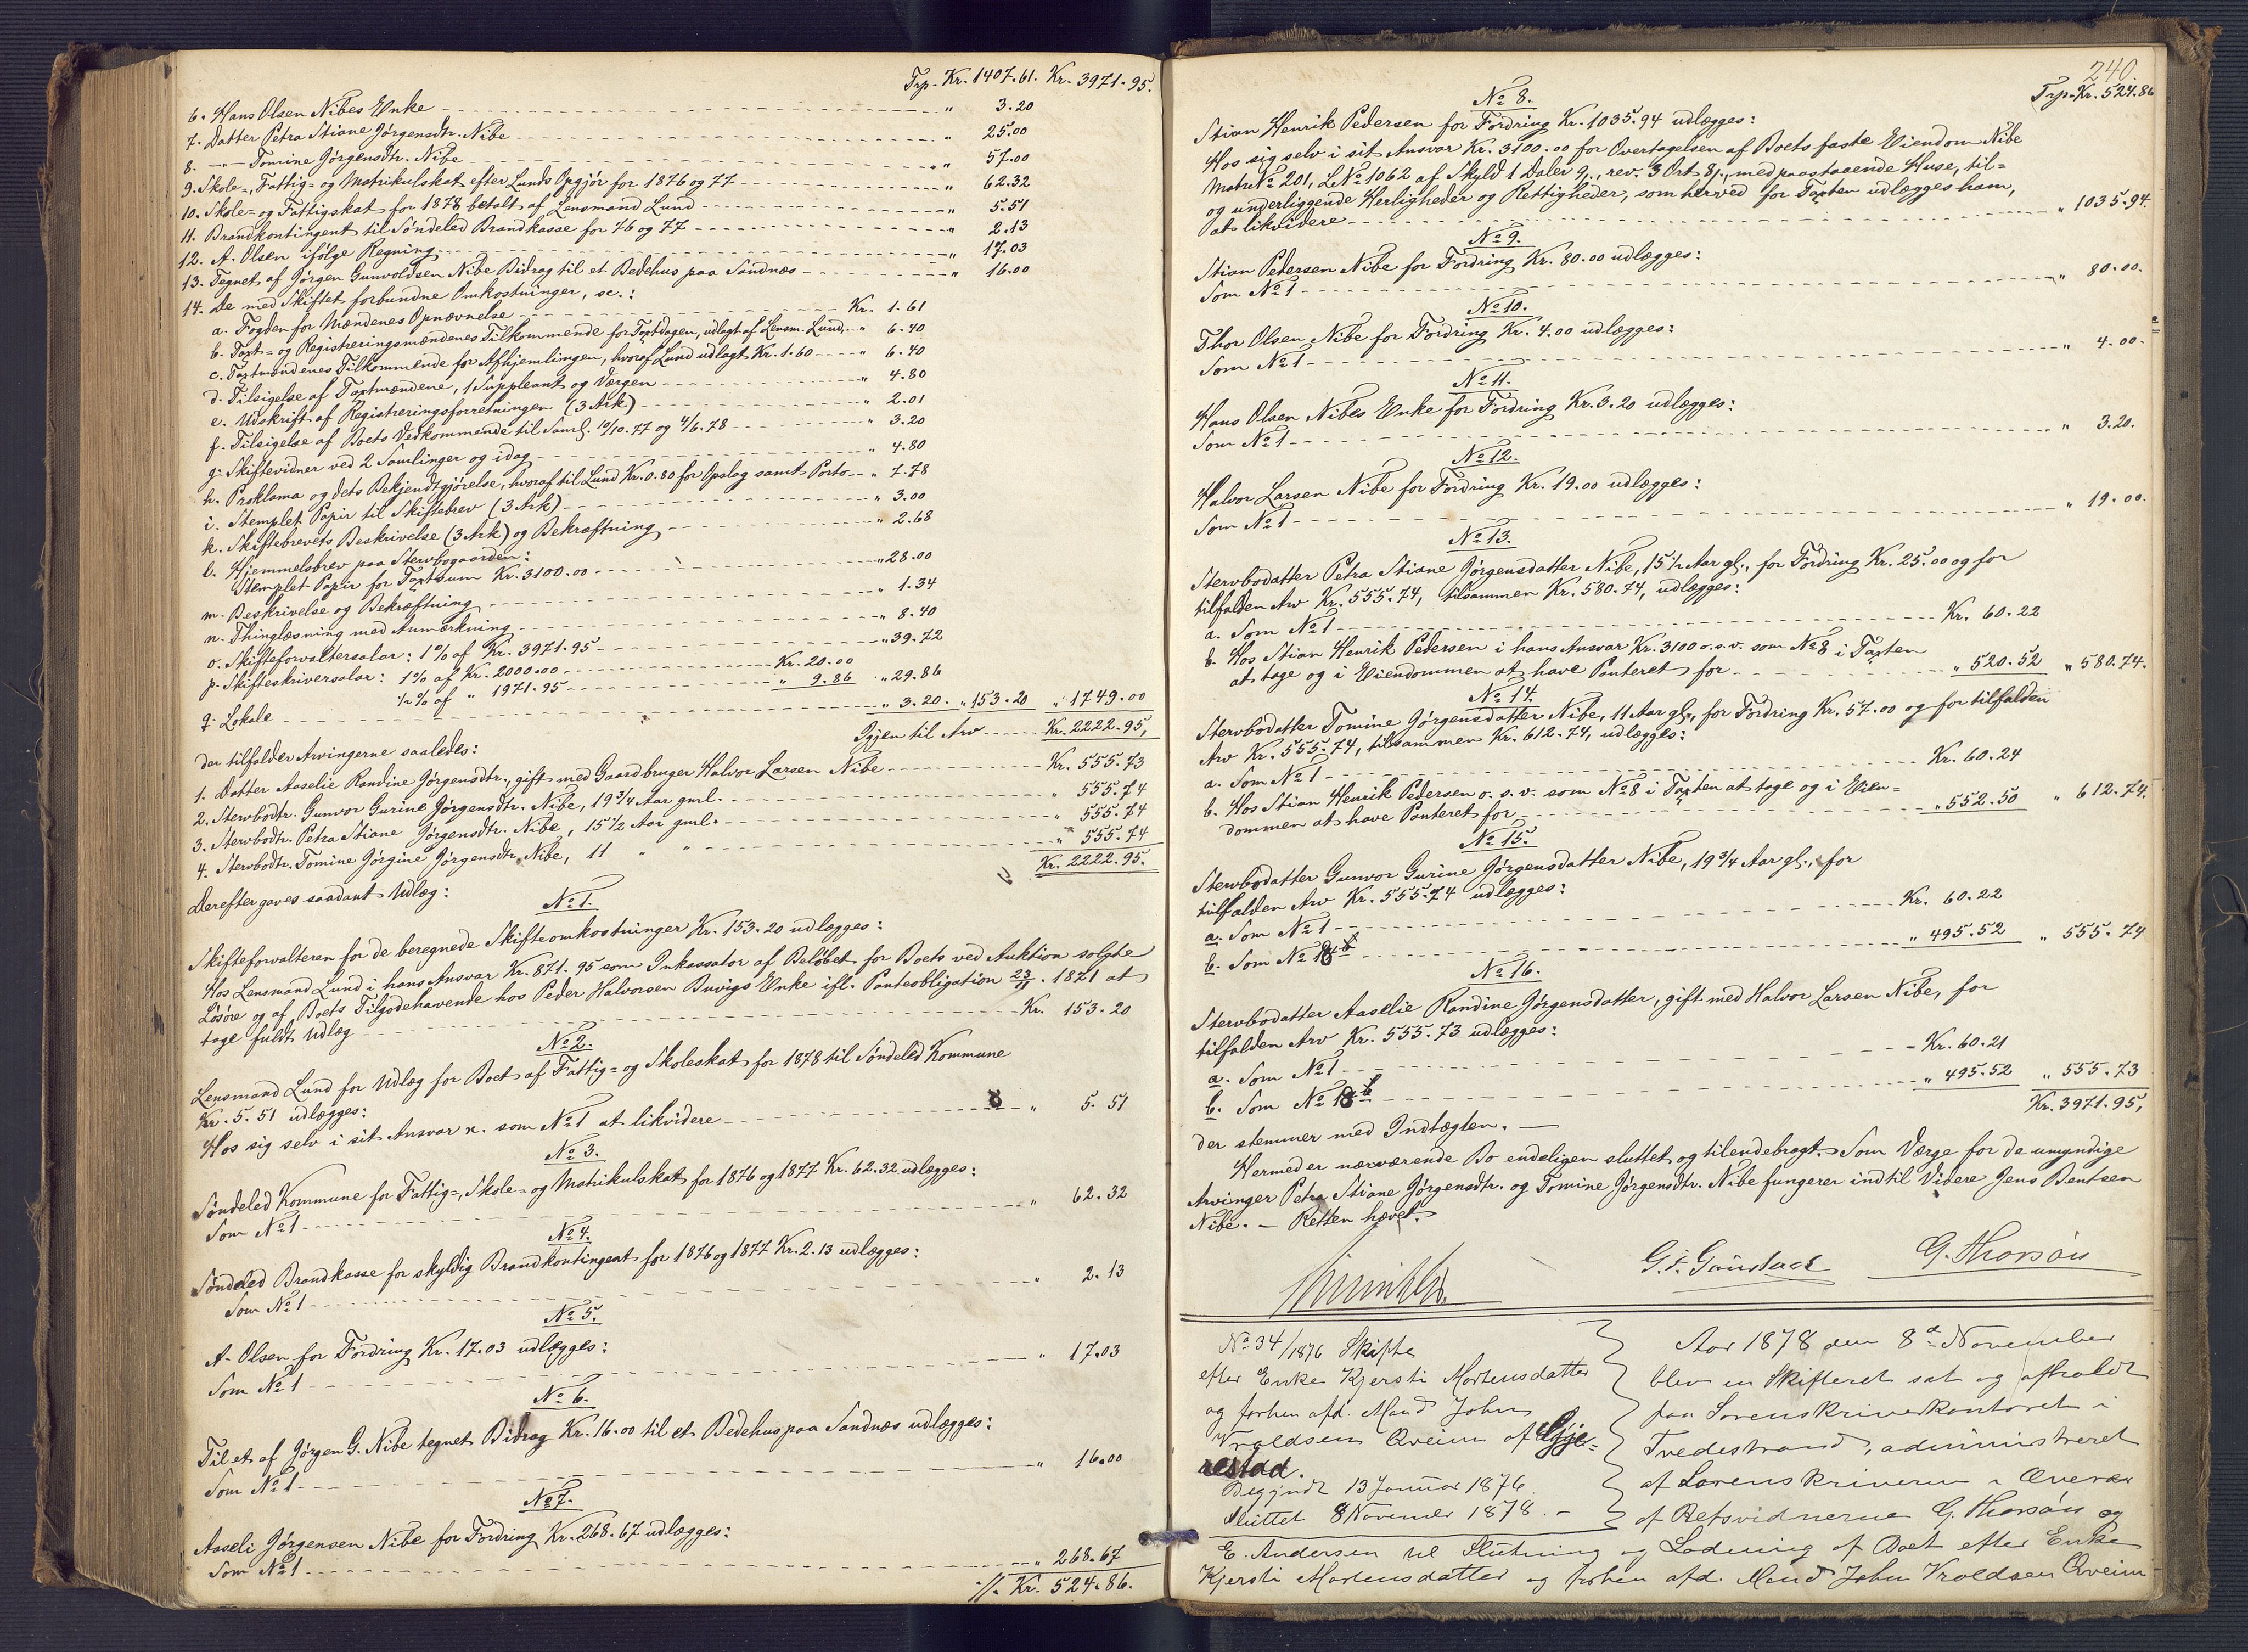 Trp. Kr. 1407.61. Kr. 3971.95.
6. Hans Olsen Nibes Enke " 3.20
7. Datter Petra Stiane Jørgensdtr. Nibe " 25.00
8. -"- Tomine Jørgensdtr. Nibe " 57.00
9. Skole-, Fattig- og Matrikulskat efter Lunds Opgjør for 1876 og 77 " 62.32
10. Skole- og Fattigskat for 1878 betalt af Lensmand Lund " 5.51
11. Brandkontingent til Søndeled Brandkasse for 76 og 77 " 2.13
12. A. Olsen ifølge Regning " 17.03
13. Tegnet af Jørgen Gunvoldsen Nibe Bidrag til et Bedehus paa Sandnæs " 16.00
14. De med Skiftet forbundne Omkostninger, sc.:
a. Fogden for Mændenes Opnævnelse Kr. 1.61
b. Taxt- og Registreringsmændenes Tilkommende for Taxtdagen, udlagt af Lensm. Lund " 6.40
c. Taxtmændenes Tilkommende for Afhjemlingen, hvoraf Lund udlagt Kr. 1.60 " 6.40
d. Tilsigelse af Taxtmændene, 1 Suppleant og Værgen " 4.80
e. Udskrift af Registreringsforretningen (3 Ark) " 2.01
f. Tilsigelse af Boets Vedkommende til Saml. 10/10.77 og 4/6.78 " 3.20
g. Skiftevidner ved 2 Samlinger og idag " 4.80
h. Proklama og dets Bekjendtgjørelse, hvoraf til Lund Kr. 0.80 for Opslag samt Porto " 7.78
i. Stemplet Papir til Skiftebrev (3 Ark) " 3.00
k. Skiftebrevets Beskrivelse (3 Ark) og Bekræftning " 2.68
l. Hjemmelsbrev paa Stervbogaarden:
Stemplet Papir for Taxtsum Kr. 3100.00 " 28.00
m. Beskrivelse og Bekræftning " 1.34
n. Thinglæsning med Anmærkning " 8.40
o. Skifteforvaltersalar: 1% af Kr. 3971.95 " 39.72
p. Skifteskriversalar: 1% af Kr. 2000.00 Kr. 20.00
½% af " 1971.95 " 9.86 " 29.86
q. Lokale " 3.20. " 153.20 " 1749.00
Igjen til Arv Kr. 2222.95,
der tilfalder Arvingerne saaledes:
1. Datter Aaselie Randine Jørgensdtr., gift med Gaardbruger Halvor Larsen Nibe Kr. 555.73
2. Stervbodtr. Gunvor Gurine Jørgensdtr. Nibe, 19¾ Aar gml. " 555.74
3. Stervbodtr. Petra Stiane Jørgensdtr. Nibe, 15½ Aar gml. " 555.74
4. Stervbodtr. Tomine Jørgine Jørgensdtr. Nibe, 11 " " " 555.74
Kr. 2222.95.
Derefter gaves saadant Udlæg:
No 1.
Skifteforvalteren for de beregnede Skifteomkostninger Kr. 153.20 udlægges:
Hos Lensmand Lund i hans Ansvar Kr. 871.95 som Inkassator af Beløbet for Boets ved Auktion solgte
Løsøre og af Boets Tilgodehavende hos Peder Halvorsen Buvigs Enke ifl. Panteobligation 23/11. 1871 at
tage fuldt Udlæg Kr. 153.20
No 2.
Lensmand Lund for Udlæg for Boet af Fattig- og Skoleskat for 1878 til Søndeled Kommune
Kr. 5.51 udlægges:
Hos sig selv i sit Ansvar x. som No 1 at likvidere " 5.51
No 3.
Søndeled Kommune for Fattig-, Skole- og Matrikulskat for 1876 og 1877 Kr. 62.32 udlægges:
Som No 1 " 62.32
No 4.
Søndeled Brandkasse for skyldig Brandkontingent for 1876 og 1877 Kr. 2.13 udlægges:
Som No 1 " 2.13
No 5.
A. Olsen for Fordring Kr. 17.03 udlægges:
Som No 1 " 17.03
No 6.
Til et af Jørgen G. Nibe tegnet Bidrag Kr. 16.00 til et Bedehus paa Sandnæs udlægges:
Som No 1 " 16.00
No 7.
Aaseli Jørgensen Nibe for Fordring Kr. 268.67 udlægges:
Som No 1 " 268.67
://. Kr. 524.86.
240.
Trp. Kr. 524.86
No 8.
Stian Henrik Pedersen for Fordring Kr. 1035.94 udlægges:
Hos sig selv i sit Ansvar Kr. 3100.00 for Overtagelsen af Boets faste Eiendom Nibe
Matr No 201, L No 1062 af Skyld 1 Daler 9 ß., rev. 3 Ort 8 ß., med paastaaende Huse, til-
og underliggende Herligheder og Rettigheder, som herved for Taxten udlægges ham,
at likvidere " 1035.94.
No 9.
Stian Pedersen Nibe for Fordring Kr. 80.00 udlægges:
Som No 1 " 80.00.
No 10.
Thor Olsen Nibe for Fordring Kr. 4.00 udlægges:
Som No 1 " 4.00.
No 11.
Hans Olsen Nibes Enke for Fordring Kr. 3.20 udlægges:
Som No 1 " 3.20.
No 12.
Halvor Larsen Nibe for Fordring Kr. 19.00 udlægges:
Som No 1 " 19.00.
No 13.
Stervbodatter Petra Stiane Jørgensdatter Nibe, 15½ Aar gl., for Fordring Kr. 25.00 og for
tilfalden Arv Kr. 555.74, tilsammen Kr. 580.74, udlægges:
a. Som No 1 Kr. 60.22
b. Hos Stian Henrik Pedersen i hans Ansvar Kr. 3100 o.s.v. som No 8 i Taxten
at tage og i Eiendommen at have Panteret for " 520.52 " 580.74.
No 14.
Stervbodatter Tomine Jørgensdatter Nibe, 11 Aar gl., for Fordring Kr. 57.00 og for tilfalden
Arv Kr. 555.74, tilsammen Kr. 612.74, udlægges:
a. Som No 1 Kr. 60.24
b. Hos Stian Henrik Pedersen o.s.v. som No 8 i Taxten at tage og i Eien-
dommen at have Panteret for " 552.50 " 612.74.
No 15.
Stervbodatter Gunvor Gurine Jørgensdatter Nibe, 19¾ Aar gl., for
tilfalden Arv Kr. 555.74 udlægges:
a. Som No 1 Kr. 60.22
b. Som No " 495.52 " 555.74
No 16.
Stervbodatter Aaselie Randine Jørgensdatter, gift med Halvor Larsen Nibe, for
tilfalden Arv Kr. 555.73 udlægges:
a. Som No 1 Kr. 60.21
b. Som No " 495.52 " 555.73
Kr. 3971.95,
der stemmer med Indtægten. —
Hermed er nærværende Bo endeligen sluttet og tilendebragt. Som Værge for de umyndige
Arvinger Petra Stiane Jørgensdtr. og Tomine Jørgensdtr. Nibe fungerer indtil Videre Jens Bentsen
Nibe. — Retten hævet.
G. Thorsön
No 34/1876 Skifte
efter Enke Kjersti Mortensdatter
og forhen afd. Mand John
Vroldsen Qveim af Gje-
restad.
Begyndt 13 Januar 1876.
Sluttet 8 November 1878. —
Aar 1878 den 8de November
blev en Skifteret sat og afholdt
paa Sorenskriverkontoret i
Tvedestrand, administreret
af Sorenskriveren i Overvær
af Retsvidnerne G. Thorsön og
E. Andersen til Slutning og Lodning af Boet efter Enke
Kjersti Mortensdatter og forhen afd. Mand John Vroldsen Qveim